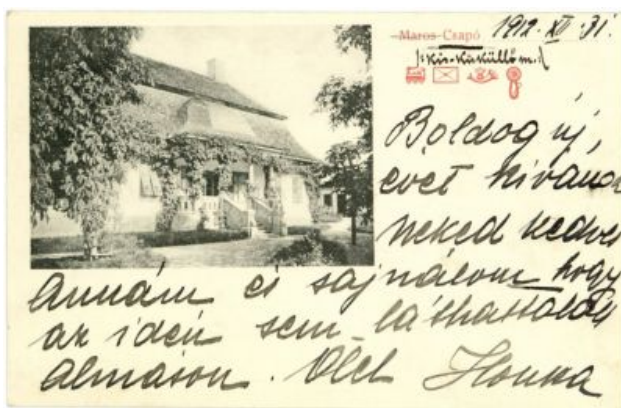 Maros-Csapó 1912. XII. 31.
(Kis-Küküllő m.)
Boldog új,
évet kivánok
neked kedves
Annám és sajnálom hogy
az idén sem láthattalak
Almáson. Ölel Ilonka